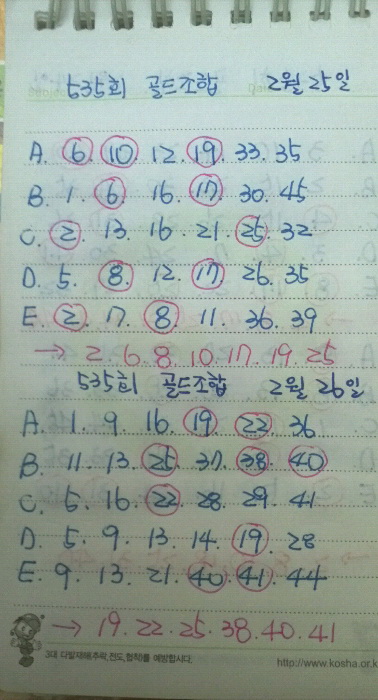 535회 골드조합 2월 25일
A. 6. 10. 12. 19. 33. 35
B. 1. 6. 16. 17. 30. 45
C. 2. 13. 16. 21. 25. 32
D. 5. 8. 12. 17. 26. 35
E. 2. 17. 8. 11. 36. 39
→ 2. 6. 8. 10. 17. 19. 25
535회 골드조합 2월 26일
A. 1. 9. 16. 19. 22. 36
B. 11. 13. 25. 37. 38. 40
C. 5. 16. 22. 28. 29. 41
D. 5. 9. 13. 14. 19. 28
E. 9. 13. 21. 40. 41. 44
→ 19. 22. 25. 38. 40. 41
3대 다발재해(추락,전도,협착)를 예방합시다.
http://www.kosha.or.k